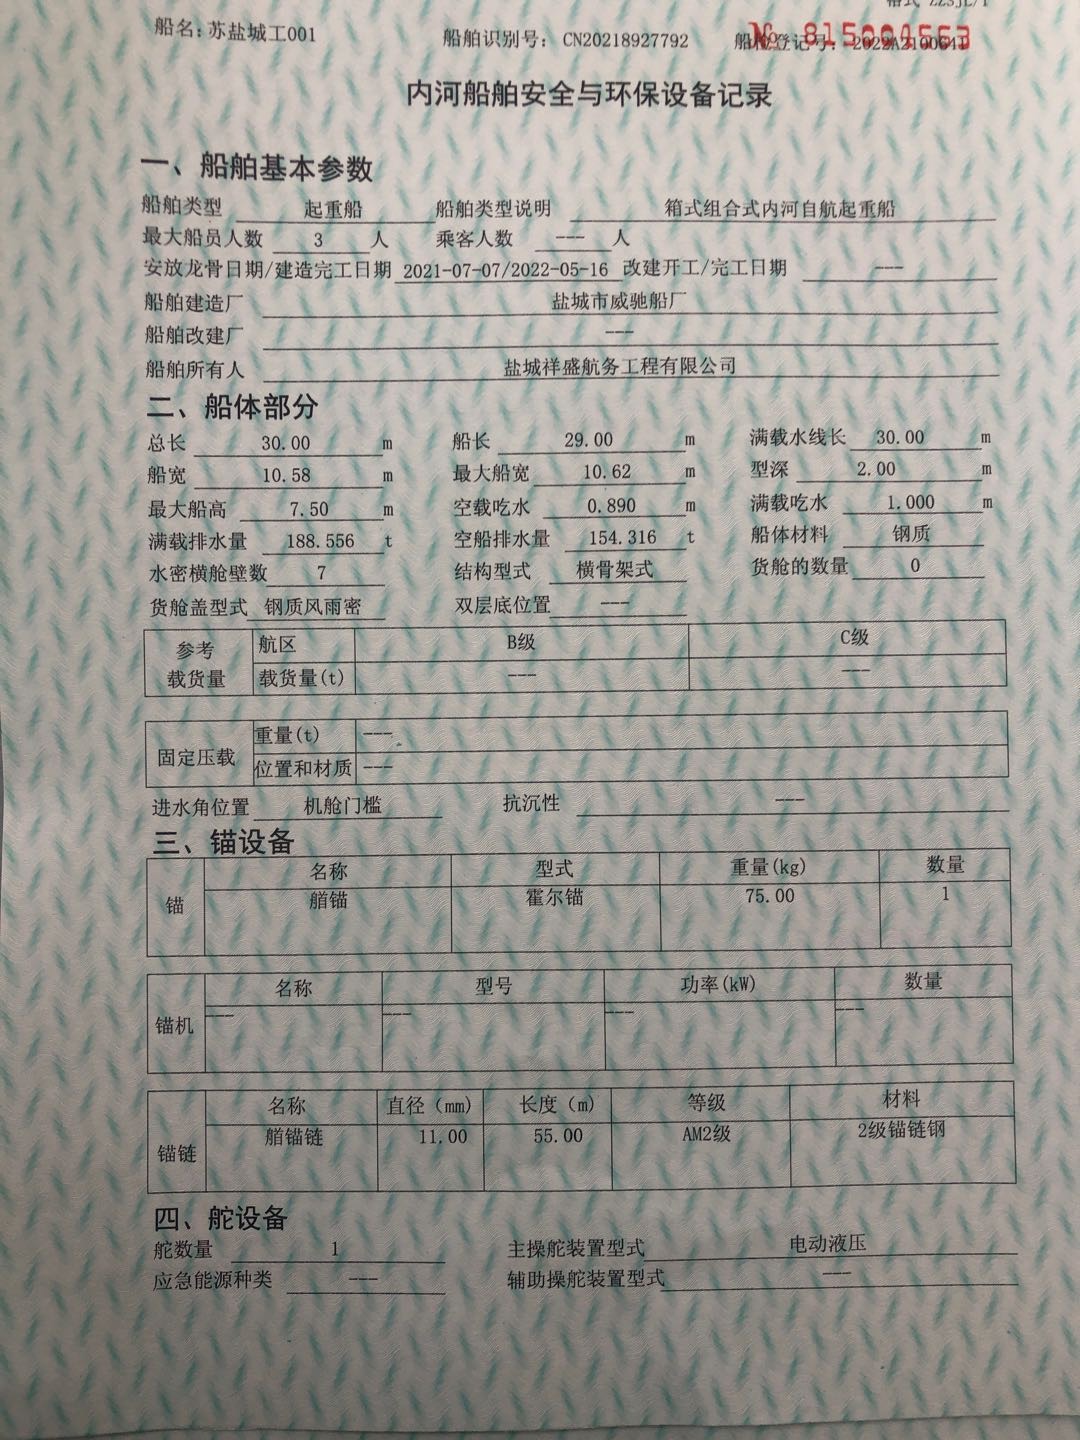 格式 ZZSJL/1
船名：苏盐城工001 船舶识别号： CN20218927792 船检登记号：
№ 815001563
内河船舶安全与环保设备记录
一、船舶基本参数
船舶类型 起重船 船舶类型说明 箱式组合式内河自航起重船
最大船员人数 3 人 乘客人数 --- 人
安放龙骨日期/建造完工日期 2021-07-07/2022-05-16 改建开工/完工日期 ---
船舶建造厂 盐城市威驰船厂
船舶改建厂 ---
船舶所有人 盐城祥盛航务工程有限公司
二、船体部分
总长 30.00 m 船长 29.00 m 满载水线长 30.00 m
船宽 10.58 m 最大船宽 10.62 m 型深 2.00 m
最大船高 7.50 m 空载吃水 0.890 m 满载吃水 1.000 m
满载排水量 188.556 t 空船排水量 154.316 t 船体材料 钢质
水密横舱壁数 7 结构型式 横骨架式 货舱的数量 0
货舱盖型式 钢质风雨密 双层底位置 ---
参考 载货量 航区 B级 C级
载货量(t) --- ---
固定压载 重量(t) ---
位置和材质 ---
进水角位置 机舱门槛 抗沉性 ---
三、锚设备
锚 名称 型式 重量(kg) 数量
艏锚 霍尔锚 75.00 1
锚机 名称 型号 功率(kW) 数量
--- --- --- ---
锚链 名称 直径（mm) 长度（m) 等级 材料
艏锚链 11.00 55.00 AM2级 2级锚链钢
四、舵设备
舵数量 1 主操舵装置型式 电动液压
应急能源种类 --- 辅助操舵装置型式 ---